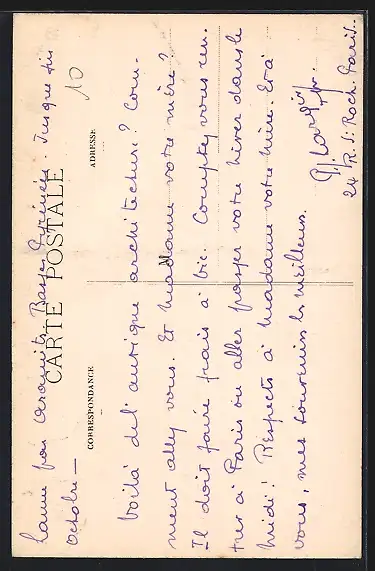 Lanne par Aramits. Basses Pyrénées. Jusque fin
octobre —
CARTE POSTALE
CORRESPONDANCE
ADRESSE
10
Voilà de l'antique architecture? Com-
ment allez vous. Et Madame votre mère?
Il doit faire frais à Vic. Comptez vous ren-
trer à Paris ou aller passer votre hiver dans le
midi? Respects à Madame votre mère. Et à
vous, mes souvenirs les meilleurs.
24 R. St Roch. Paris.